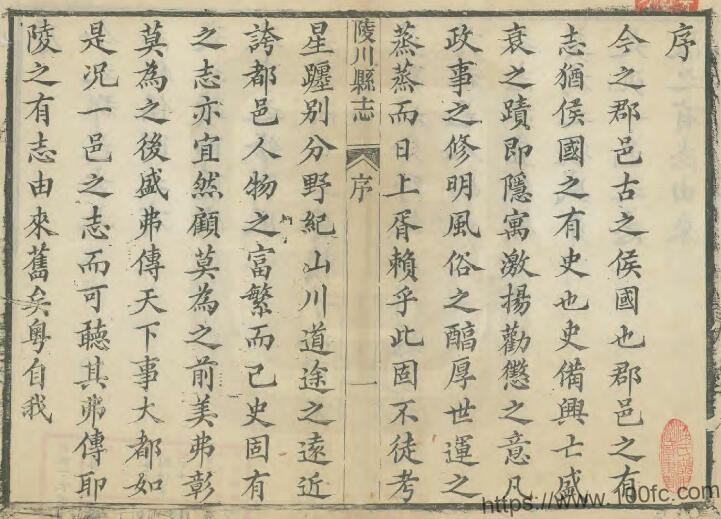 序
今之郡邑古之侯國也郡邑之有
志猶侯國之有史也史備興亡盛
衰之蹟即隱寓激揚勸懲之意凡
政事之修明風俗之醕厚世運之
蒸蒸而日上胥賴乎此固不徒考
陵川縣志 序 一
星躔別分野紀山川道途之遠近
誇都邑人物之富繁而已史固有
之志亦宜然顧莫為之前美弗彰
莫為之後盛弗傳天下事大都如
是况一邑之志而可聽其弗傳耶
陵之有志由來舊矣粵自我
https://www.100fc.com